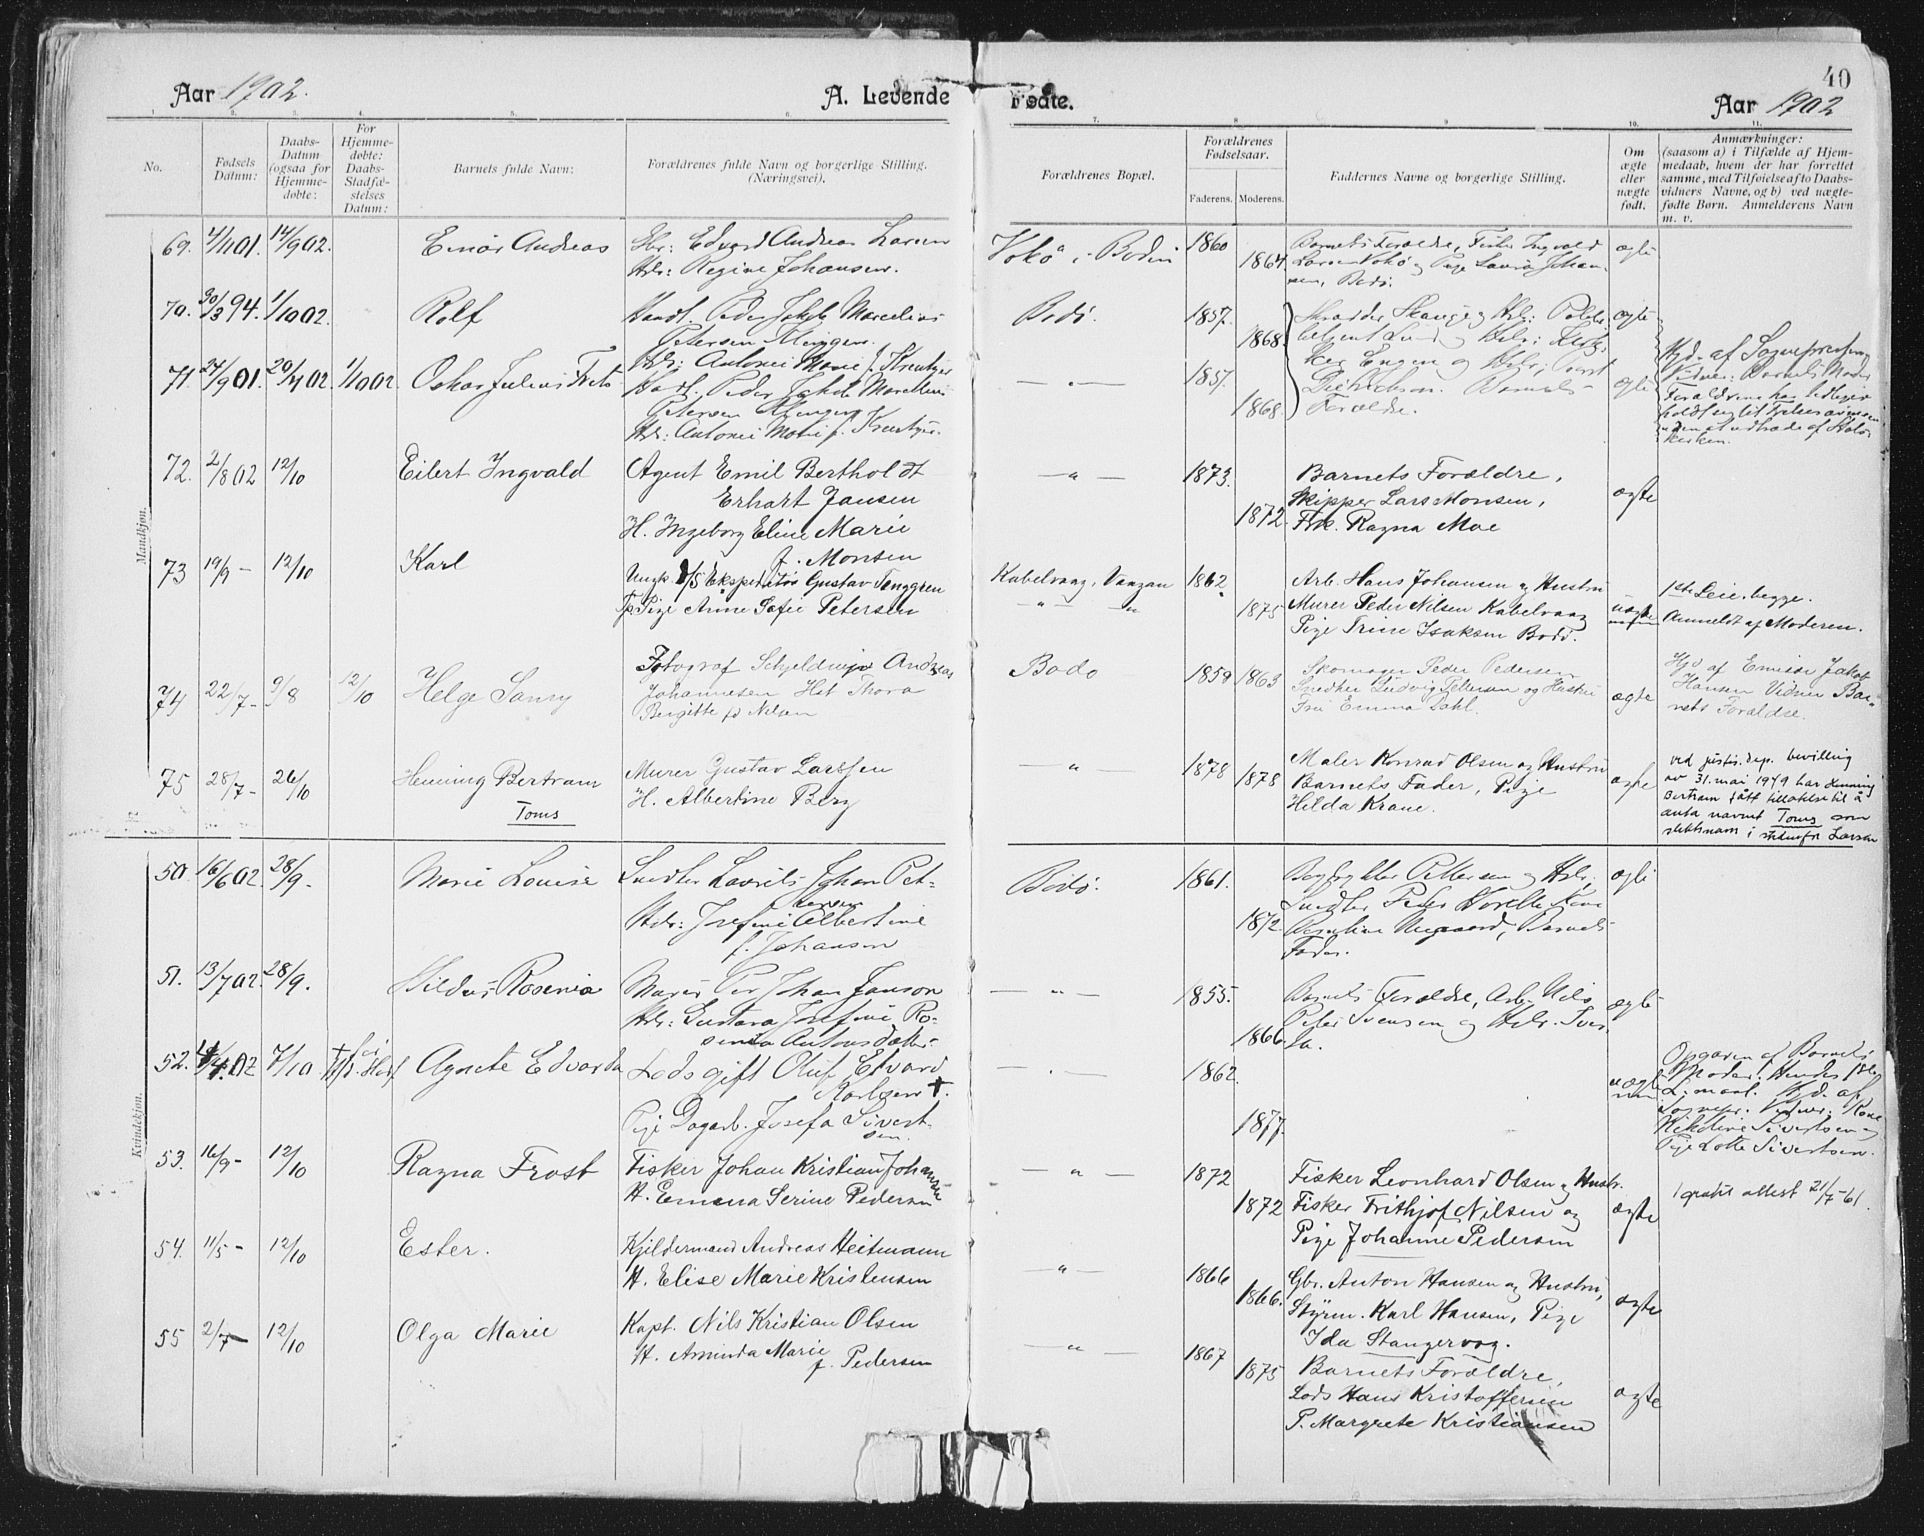 Aar 1902.
A. Levende
Fødte.
40
Aar 1902
1. 2. 3. 4. 5. 6. 7. 8. 9. 10. 11.
No.
Fødsels Datum:
Daabs-Datum (ogsaa for Hjemme-døbte:
For Hjemme-døbte: Daabs-Stadfæ-stelses Datum:
Barnets fulde Navn:
Forældrenes fulde Navn og borgerlige Stilling.
(Næringsvei).
Forældrenes Bopæl.
Forældrenes Fødselsaar.
Faderens. Moderens.
Faddernes Navne og borgerlige Stilling.
Om ægte eller uægte født.
Anmærkninger:
(saasom a) i Tilfælde af Hjem-
medaab, hvem der har forrettet
samme, med Tilføielse af to Daabs-
vidners Navne, og b) ved uægte-
fødte Børn. Anmelderens Navn
m. v.
Mandkjøn.
69. 4/1101. 14/902. Einar Andreas
Gbr: Edvard Andreas Larsen
Hstr: Regine Johansen.
i Bodin 1860 1864.
Barnets Forældre, Fisker Ingvald
Larsen og Pige Laura Johan-
sen, Bodø.
ægte
70. 30/394. 1/1002. Rolf
Handl. Peder Jakob Marcelius
Petersen
Hstr: Antonie Marie f. Kreutzer
Bodø. 1857. 1868.
ægte
71. 24/901. 20/702. 1/1002. Oskar Julius
Handl. Peder Jakob Marcelius
Petersen
Hstr: Antonie Marie f. Kreutzer.
— " — 1857. 1868.
Barnets
Forældre.
ægte
Hjd. af Sognepresten
Vidner: Barnets Moder
72. 2/802 12/10 Eilert Ingvald
Agent Emil Berthold
Erhart Jansen
H. Ingeborg Eline Marie
f. Monsen
— " — 1873. 1872.
Barnets Forældre,
Skipper Lars Monsen,
Frk. Ragna Moe
ægte
73 19/9 — 12/10 Karl
Ungk. D/S Ekspeditør Gustav Tenggren
Pige Anne Sofie Petersen
Kabelvaag, Vaagan 1862 1875
Arb. Hans Johansen og Hustru
Murer Peder Nilsen Kabelvaag
Pige Trine Isaksen Bodø.
uægte
1ste Leie begge.
Anmeldt af Moderen.
74 22/7 — 9/8 12/10 Helge
Fotograf Schjeldrup Andreas
Johannesen Hst Thora
Birgitte fd Nilsen
Bodø 1859 1863
Skomager Peder Pedersen
Snedker Ludvig Pettersen og Hustru
Fru Emma Dahl.
ægte
Hjd af Emisær Jakob
Hansen Vidner Bar-
nets Forældre.
75 28/7 — 26/10 Henning Bertram
Toms
Murer Gustav Larssen
H. Albertine Berg
— " — 1878 1878
Maler Konrad Olsen og Hustru
Barnets Fader, Pige
Hilda Krane.
ægte
ved justis.dep. bevilling
av 31. mai 1949 har Henning
Bertram fått tillatelse til å
anta navnet Toms som
slektsnavn i stedenfor Larsen
Kvindekjøn.
50. 16/602. 28/9. Marie Louise
Snedker Laurits Johan Pet-
tersen
Hstr: Josefine Albertine
f. Johansen
Bodø. 1861. 1872.
Pettersen og Hstr.
Snedker Peder
Barnets
Fader.
ægte
51. 13/702. 28/9. Hildur Rosenia
Murer Per Johan Janson
Hstr: Gustava Josefine Ro-
senia Antonsdatter
— " — 1855. 1866.
Barnets Forældre, Arb. Nils
Peter Svensen og Hstr.
ægte
52. 7/10 Agnete Edvarda
Lods gift Oluf Edvard
Karlsen †.
Pige Dagarb. Josefa Sivert-
sen.
— " — 1862. 1877.
uægte
Opgaven af Barnets
Moder. Hendes
Hjd. af
Sognepr. Vidner: Kone
Nikoline Sivertsen og
Pige Lotte Sivertsen.
53. 16/9 — 12/10 Ragna Frost
Fisker Johan Kristian Johansen
H. Emma Serine Pedersen
— " — 1872 1872
Fisker Leonhard Olsen og Hustr.
Fisker Frithjof Nilsen og
Pige Johanne Pedersen
ægte
1 gratis attest 21/7-61.
54. 11/5 — 12/10 Ester.
Kjeldermand Andreas Heitmann
H. Elise Marie Kristensen
— " — 1866 1866.
Gbr. Anton Hansen og Hustru,
Styrm. Karl Hansen, Pige
Ida Stangervog.
ægte
55 2/7 — 12/10 Olga Marie
Kapt. Nils Kristian Olsen
H. Aminda Marie
f. Pedersen
— " — 1867 1875
Barnets Forældre,
Lods Hans Kristoffersen
P. Margrete Kristiansen
ægte